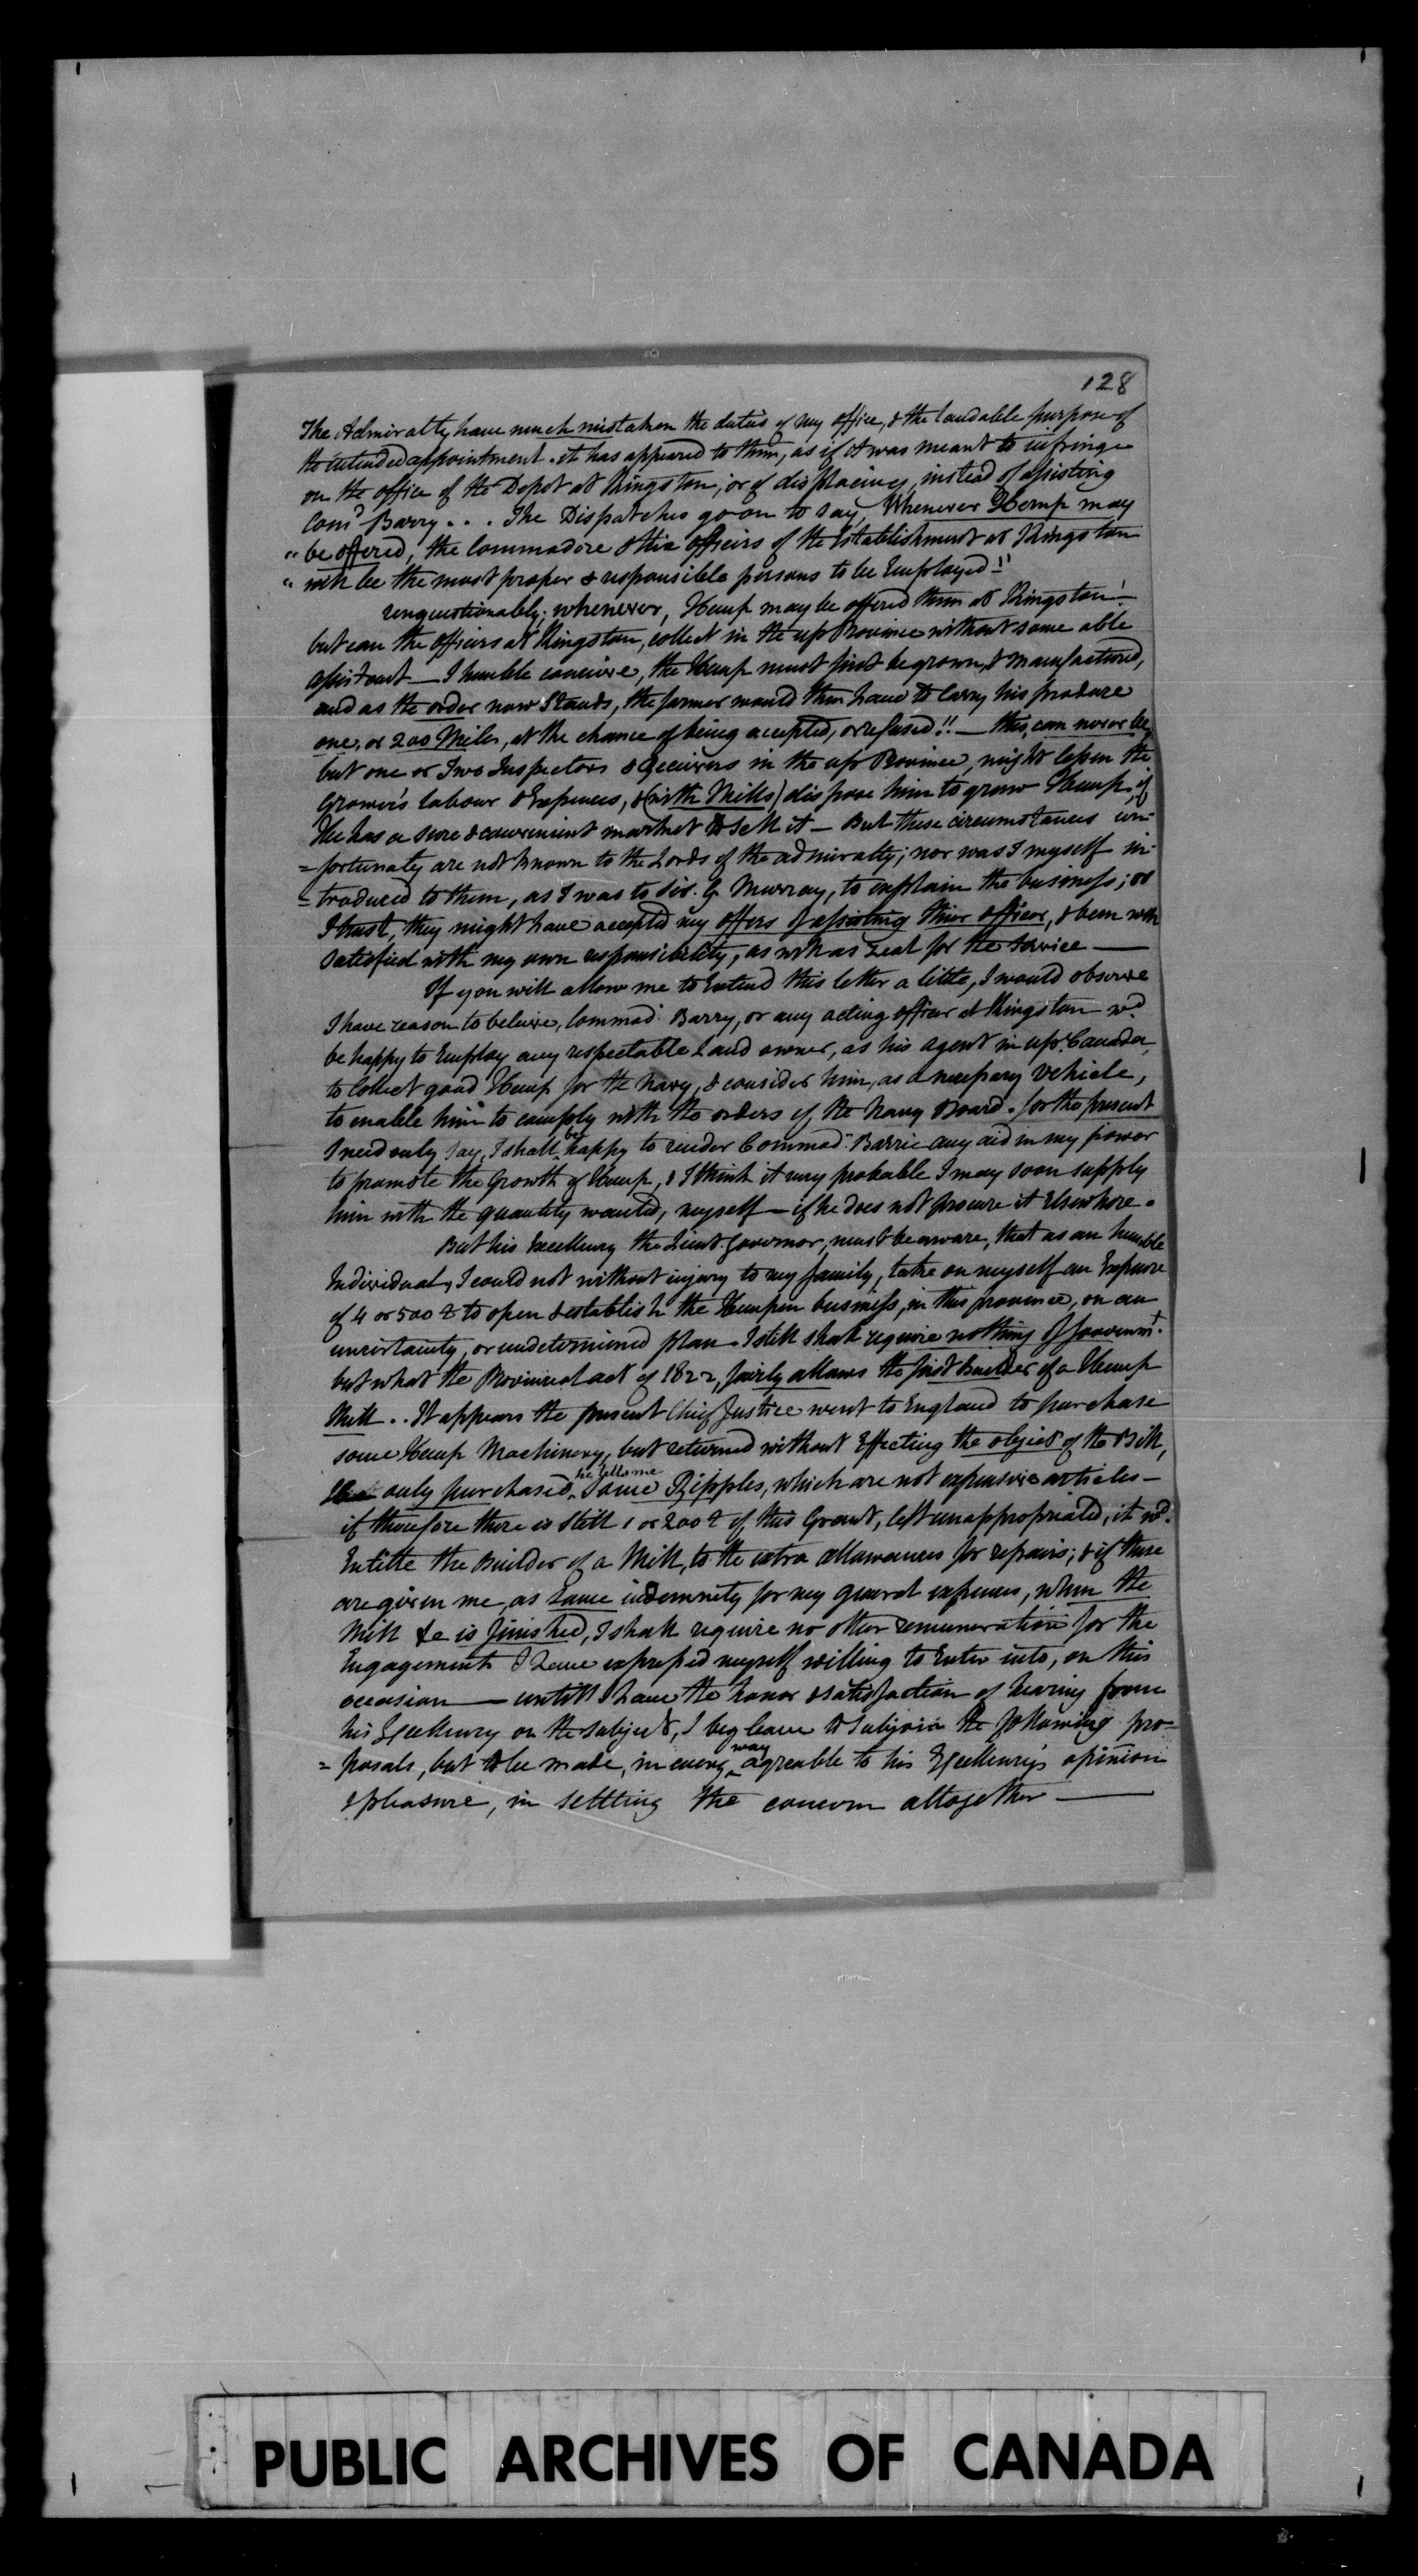 128
The Admiralty have much mistaken the duties of my office, & the laudable purpose of
the intended appointment. it has appeared to them, as if it was meant to infringe
on the office of the Depot at Kingston; or of displacing, instead of assisting
Comr Barry... The Dispatches go on to say, Whenever Hemp may
" be offered, the Commodore & the officers of the Establishment at Kingston
" will be the most proper & responsible persons to be Employed!!
unquestionably; whenever, Hemp may be offered them at Kingston!—
but can the officers at Kingston, collect in the upr Province without some able
assistant — I humble conceive, the Hemp must first be grown, & manufactured,
and as the order now Stands, the farmer would then have to Carry his produce
one, or 200 Miles, at the chance of being accepted, or refused!! — this, can never be,
but one or Two Inspectors & Receivers in the upr Province, might lessen the
Grower's labour & Expences, & (with Mills) dispose him to grow Hemp, if
He has a sure & convenient market to sell it — But these circumstances un-
=fortunately are not known to the Lords of the admiralty; nor was I myself in-
=troduced to them, as I was to Sir G Murray, to explain the business; or
I trust, they might have accepted my offers of assisting their officer, & been well
Satisfied with my own responsibility, as well as zeal for the Service —
If you will allow me to Extend this letter a little, I would observe
I have reason to beleive, Commodr Barry, or any acting officer at Kingston wd
be happy to Employ any respectable Land owner, as his agent in upr Canada,
to Collect good Hemp for the Navy, & consider him, as a necessary vehicle,
to enable him to comply with the orders of the Navy Board. for the present
I need only say, I shall be happy to render Commodr Barrie any aid in my power
to promote the Growth of Hemp, & I think it very probable I may soon supply
him with the quantity wanted, myself — if he does not procure it Elsewhere.
But his Excellency the Lieut. Governor, must be aware, that as an humble
Individual, I could not without injury to my family, take on myself an Expence
of 4 or 500 £ to open & establish the Hempen business, in this province, on an
uncertainty, or undetermined plan. I still shall require nothing of Governmt.
but what the Provincial act of 1822, fairly allows the first builder of a Hemp
Mill.. It appears the present Chief Justice went to England to purchase
some Hemp Machinery, but returned without Effecting the object of the Bill,
only purchased, he tells me some Ripples, which are not expensive articles —
if therefore there is still 1 or 200 £ of this Grant, left unappropriated, it wd.
Entitle the Builder of a Mill, to the extra allowances for repairs; & if these
are given me, as some indemnity for my general expences, when the
Mill &c is finished, I shall require no other remuneration for the
Engagements I have expressed myself willing to Enter into, on this
occasion — untill I have the honor & satisfaction of hearing from
his Excellency on the subject, I beg leave to subjoin the following pro-
=posals, but to be made, in every way agreable to his Excellency's opinion
& pleasure, in settling the concern altogether —
PUBLIC ARCHIVES OF CANADA